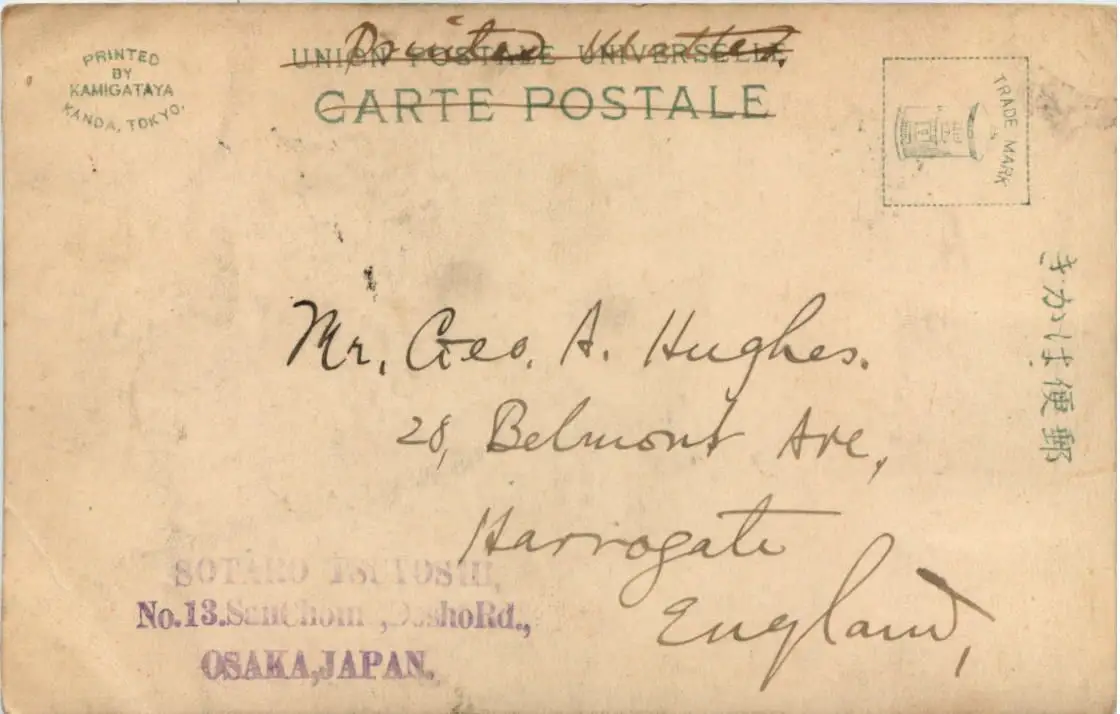 PRINTED
BY
KAMIGATAYA
KANDA, TOKYO.
Printed Matter.
UNION POSTALE UNIVERSELLE
CARTE POSTALE
TRADE MARK
郵便はかき
Mr. Geo. A. Hughes.
28, Belmont Ave,
Harrogate
England,
SOTARO TSUYOSHI,
No.13.SanChom ,DoshoRd.,
OSAKA,JAPAN.